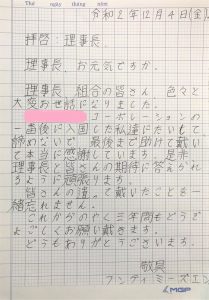 Thứ ngày tháng năm
令和2年12月4日(金)
拝啓:理事長、
理事長、お元気ですか。
理事長、組合の皆さん、色々と
大変お世話になりました。
コーポレーションの
一番後に入国した私達にたいして、
諦めないで、最後まで助けて戴い
て本当に感謝しています。是非、
理事長と皆さんの期待に答えられ
るように頑張ります。
皆さんの違って戴いたことも一
緒忘れません。
これからのやく三年間もどうぞ
よろしくお願い戴きます。
どうもありがとうございます。
敬具
MGP